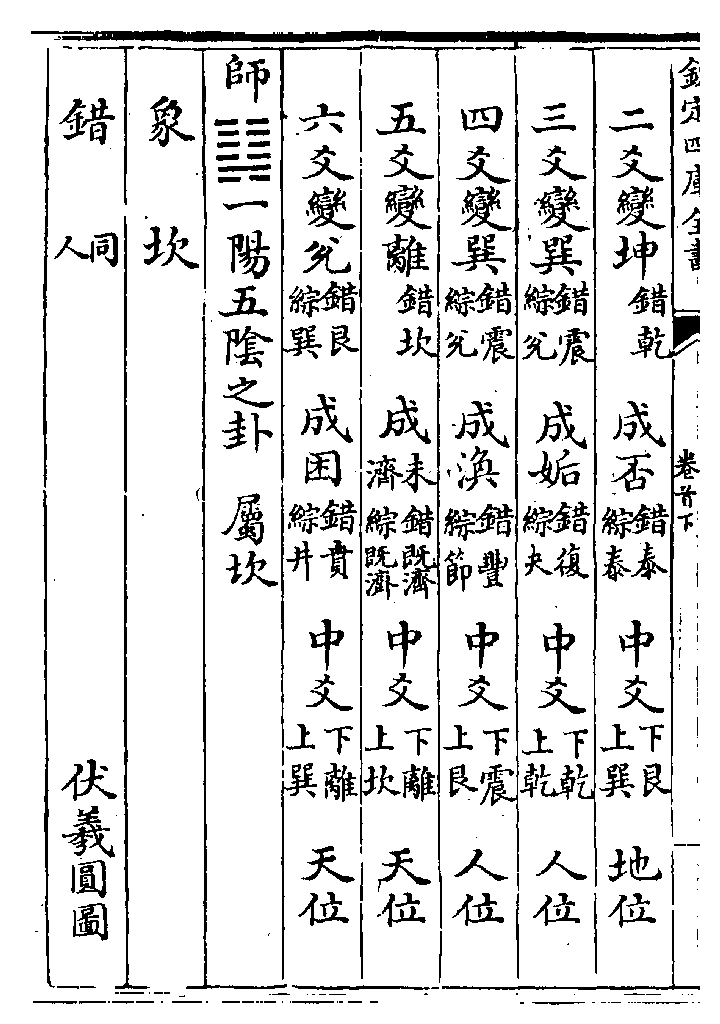 欽定四庫全書
卷首下
二爻變坤錯乾 成否錯泰綜泰 中爻下艮上巽 地位
三爻變巽錯震綜兊 成姤錯復綜夬 中爻下乾上乾 人位
四爻變巽錯震綜兊 成渙錯豐綜節 中爻下震上艮 人位
五爻變離錯坎 成未濟錯既濟綜既濟 中爻下離上坎 天位
六爻變兊錯艮綜巽 成困錯賁綜井 中爻下離上巽 天位
師䷆一陽五陰之卦 屬坎
象 坎
錯 同人 伏羲圓圖